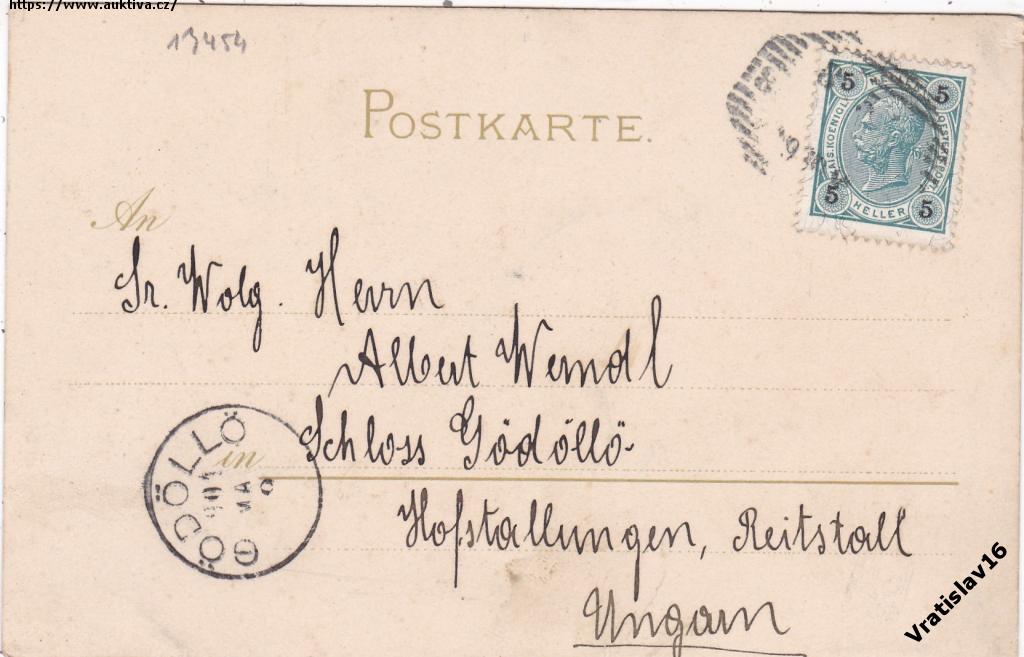 https://www.auktiva.cz/
13454
POSTKARTE.
5 5
KAIS. KOENIGL.
HELLER
5 5
An
Sr. Wolg. Herrn
Albert Wemdl
Schloss Gödöllö
in
GÖDÖLLÖ
MA
Hofstallungen, Reitstall
Ungarn
Vratislav16